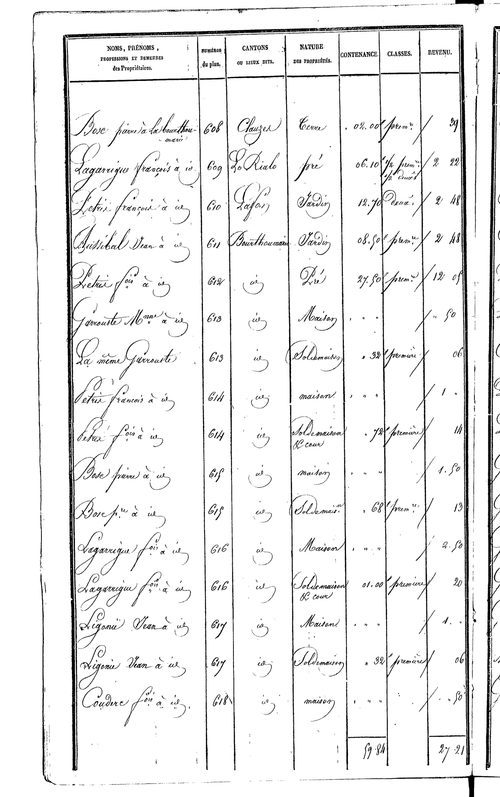 NOMS, PRÉNOMS, PROFESSIONS ET DEMEURES des Propriétaires. NUMÉROS du plan. CANTONS OU LIEUX DITS. NATURE DES PROPRIÉTÉS. CONTENANCE. CLASSES. REVENU.
Bosc pierre à la bourthou- 608 Clauzes terre . 02.00 prem.re / 39
marié
Lagarrigue françois à id 609 Lo Rialo pré 06.10 1/2 prem.re / 2 22
1/2 deux.e
Petrié françois à id 610 Lafon Jardin 12.70 Deux.e / 2 48
Jean à id 611 Bourthoumarié Jardin 08.50 prem.re / 2 48
Petrié f.çois à id 612 id Pré 27.50 prem.re / 12 05
Garrouste M.nne à id 613 id Maison . . . / " 50
La même Garrouste 613 id Soldemaison . 32 première / 06
Petrié francois à id 614 id maison . . . / 1 .
Petrié f.çois à id 614 id Soldemaison . 72 première / 14
& cour
Bosc pierre à id 615 id maison . . . / 1.50
Bosc p.re à id 615 id Soldemais.on . 68 prem.re / 13
Lagarrigue f.ois à id 616 id Maison . . . / 2.50
Lagarrigue f.ois à id 616 id Soldemaison 01.00 première / 20
& cour
Ligonié Jean à id 617 id Maison . . . / 1 . .
Ligonie Jean à id 617 id Soldemaison . 32 première / 06
Couderc f.ois à id. 618 id maison . . . . / . 50
59.84 27.21